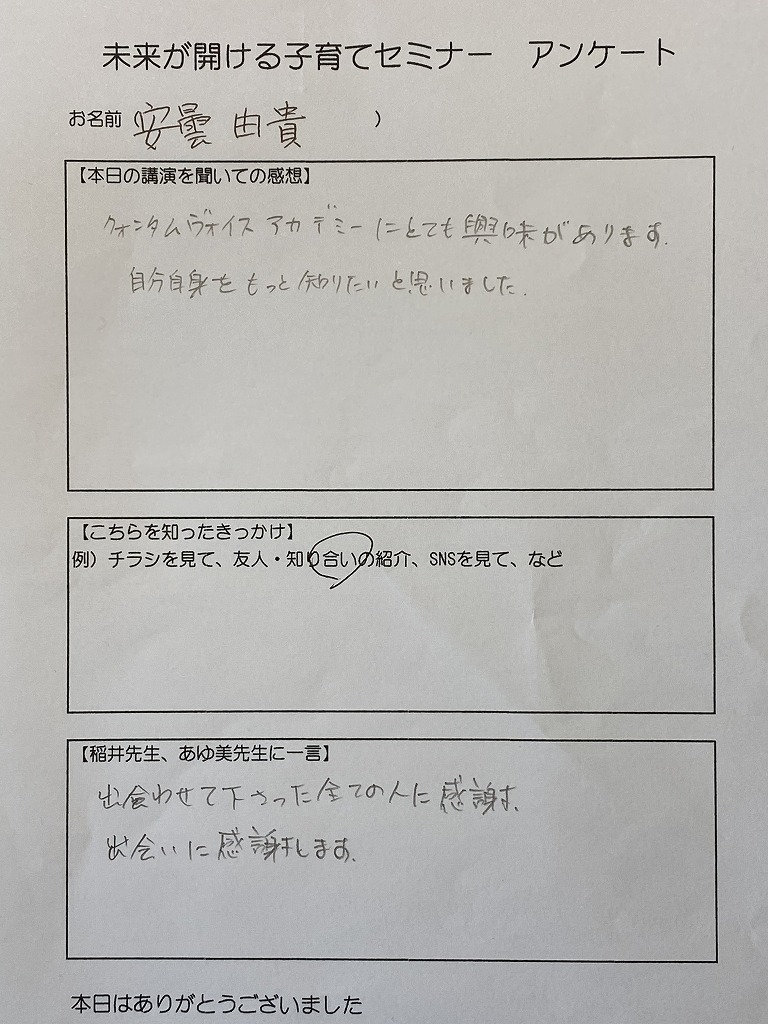 未来が開ける子育てセミナー　アンケート
お名前 安曇 由貴 ）
【本日の講演を聞いての感想】
クォンタムヴォイスアカデミーにとても興味があります。
自分自身をもっと知りたいと思いました。
【こちらを知ったきっかけ】
例）チラシを見て、友人・知り合いの紹介、SNSを見て、など
【稲井先生、あゆ美先生に一言】
出会わせて下さった全ての人に感謝、
出会いに感謝します。
本日はありがとうございました